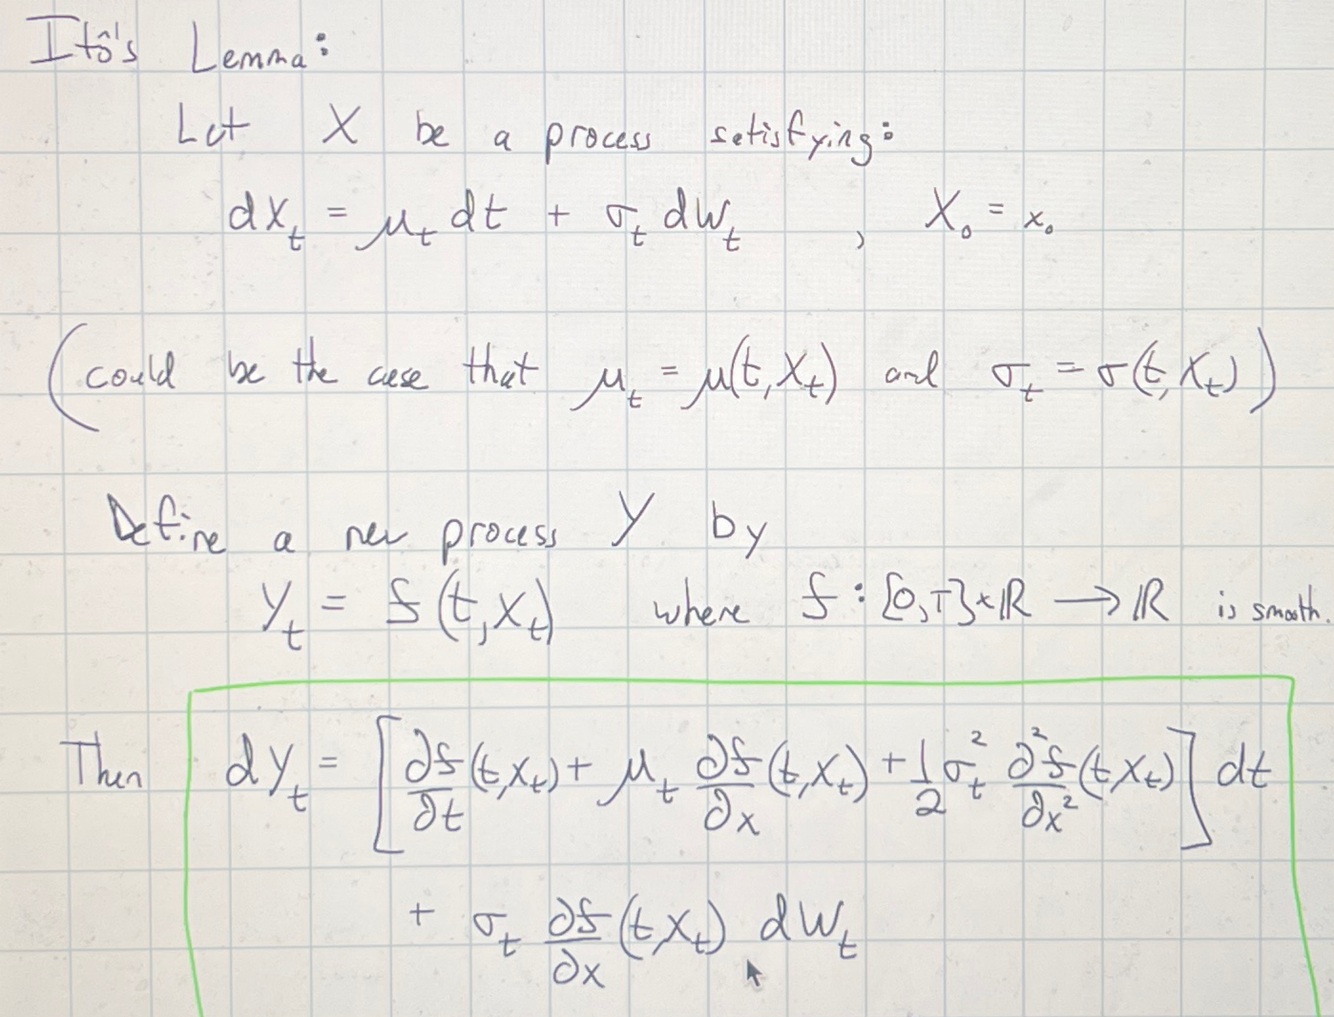 Itô's Lemma:
Let X be a process satisfying:
dX_t = μ_t dt + σ_t dW_t , X_0 = x_0
(could be the case that μ_t = μ(t,X_t) and σ_t = σ(t,X_t))
Define a new process Y by
Y_t = f(t,X_t) where f : [0,T]×ℝ → ℝ is smooth.
Then dY_t = [∂f/∂t (t,X_t) + μ_t ∂f/∂x (t,X_t) + 1/2 σ_t² ∂²f/∂x² (t,X_t)] dt
+ σ_t ∂f/∂x (t,X_t) dW_t